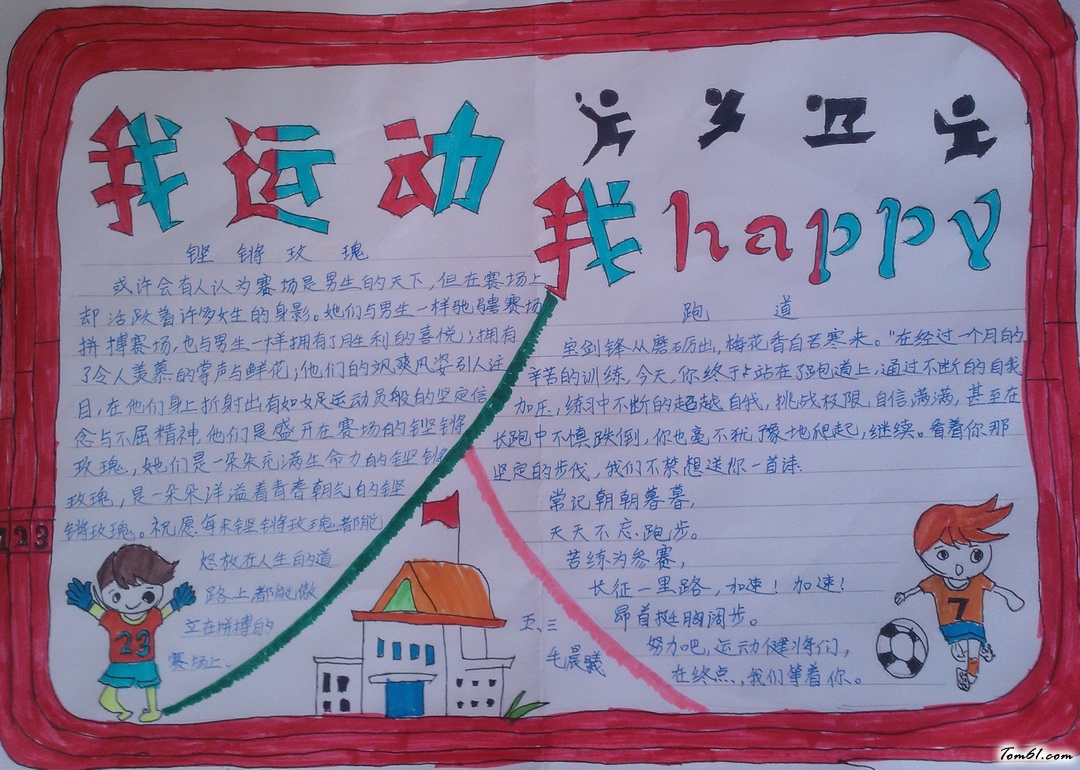 我运动
我happy
铿锵玫瑰
或许会有人认为赛场是男生的天下,但在赛场上
却活跃着许多女生的身影。她们与男生一样驰骋赛场
拼搏赛场,也与男生一样拥有了胜利的喜悦;拥有
了令人羡慕的掌声与鲜花;他们的飒爽风姿引人注
目,在他们身上折射出有如女足运动员般的坚定信
念与不屈精神。他们是盛开在赛场的铿锵
玫瑰,她们是一朵朵充满生命力的铿锵
玫瑰,是一朵朵洋溢着青春朝气的铿
锵玫瑰。祝愿每朵铿锵玫瑰都能
怒放在人生的道
路上都能傲
立在拼搏的
赛场上。
跑道
宝剑锋从磨砺出,梅花香自苦寒来。"在经过一个月的
辛苦的训练,今天,你终于站在了跑道上,通过不断的自我
加压,练习中不断的超越自我,挑战极限,自信满满,甚至在
长跑中不慎跌倒,你也毫不犹豫地爬起,继续。看着你那
坚定的步伐,我们不禁想送你一首诗:
常记朝朝暮暮,
天天不忘跑步。
苦练为参赛,
长征一里路,加速!加速!
昂首挺胸阔步。
努力吧,运动健将们,
在终点,我们等着你。
五、三
毛晨曦
123
23
7
Tom61.com